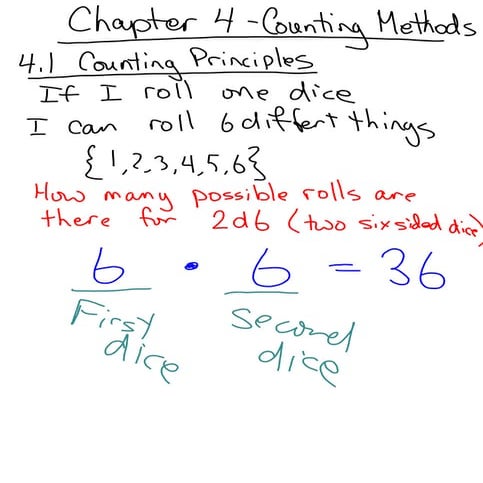 Chapter 4 - Counting Methods
4.1 Counting Principles
If I roll one dice
I can roll 6 diffent things
{1,2,3,4,5,6}
How many possible rolls are
there for 2d6 (two sixsided dice)
6 · 6 = 36
First dice
second dice